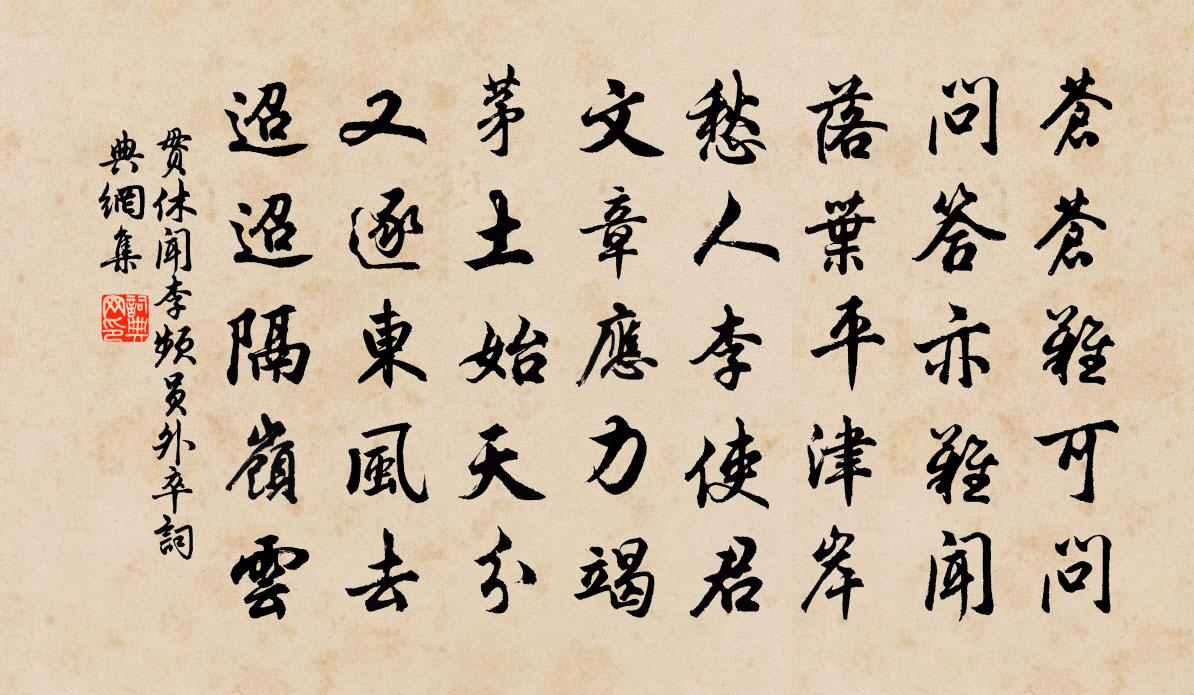 蒼蒼難可問
問答亦難聞
落葉平津岸
愁人李使君
文章應力竭
茅土始天分
又逐東風去
迢迢隔嶺雲
貫休聞李頻員外卒詞
典網集
詞典网印